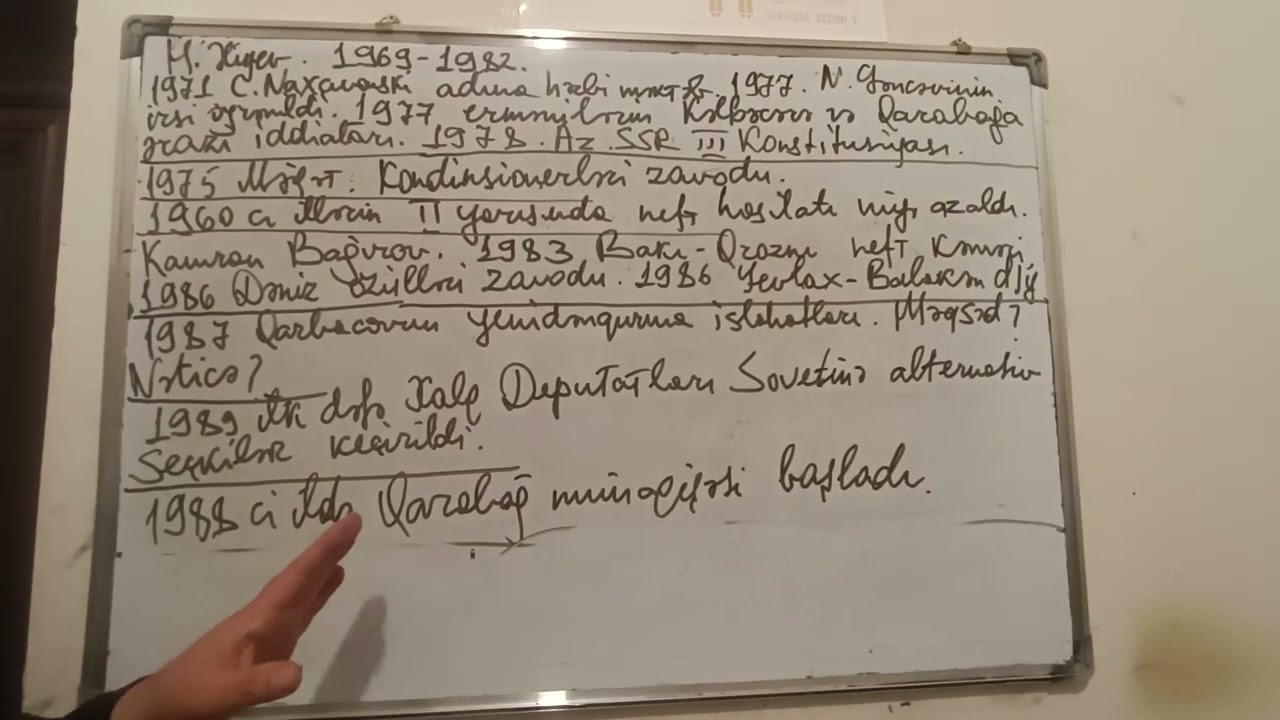 H. Əliyev. 1969-1982.
1971 C. Naxçıvanski adına hərbi məkt. 1977. N. Gəncəvinin
irsi öyrənildi. 1977 ermənilərin Kəlbəcərə və Qarabağa
ərazi iddiaları. 1978. Az. SSR III Konstitusiyası.
1975 Məişət. Kondinsionerləri zavodu.
1960 cı illərin II yarısında neft hasilatı azaldı.
Kamran Bağırov. 1983 Bakı-Qroznı neft kəməri
1986 Dəniz özülləri zavodu. 1986 Yevlax-Balakən d/y
1987 Qarbaçovun yenidənqurma islahatları. Məqsəd?
Nəticə?
1989 ilk dəfə Xalq Deputatları Sovetinə alternativ
Seçkilər keçirildi.
1988 ci ildə Qarabağ münaqişəsi başladı.